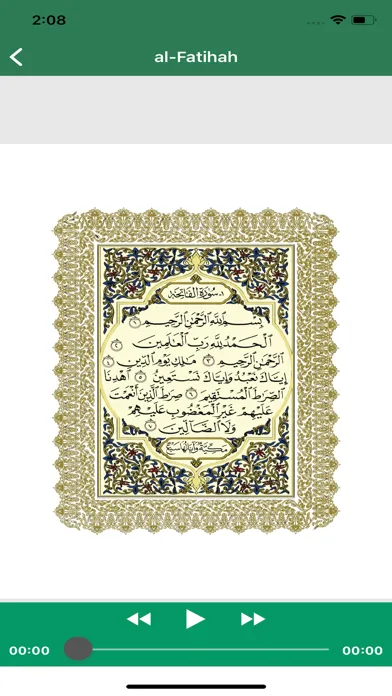 2:08
al-Fatihah
سُورَةُ الفَاتِحَةِ
بِسْمِ اللَّهِ الرَّحْمَٰنِ الرَّحِيمِ ١
الْحَمْدُ لِلَّهِ رَبِّ الْعَالَمِينَ ٢
الرَّحْمَٰنِ الرَّحِيمِ ٣ مَالِكِ يَوْمِ الدِّينِ ٤
إِيَّاكَ نَعْبُدُ وَإِيَّاكَ نَسْتَعِينُ ٥ اهْدِنَا
الصِّرَاطَ الْمُسْتَقِيمَ ٦ صِرَاطَ الَّذِينَ أَنْعَمْتَ
عَلَيْهِمْ غَيْرِ الْمَغْضُوبِ عَلَيْهِمْ
وَلَا الضَّالِّينَ ٧
مَكِّيَّة وَآيَاتُهَا سَبْعٌ
00:00
00:00